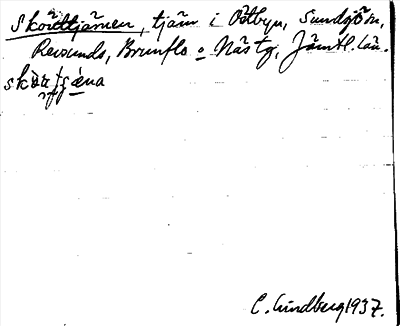 Skorttjärnen, tjärn i Östbyn, Sundsjö sn,
Revsunds, Brunflo o Näs tg, Jämtl. län.
C. Lindberg 1937.